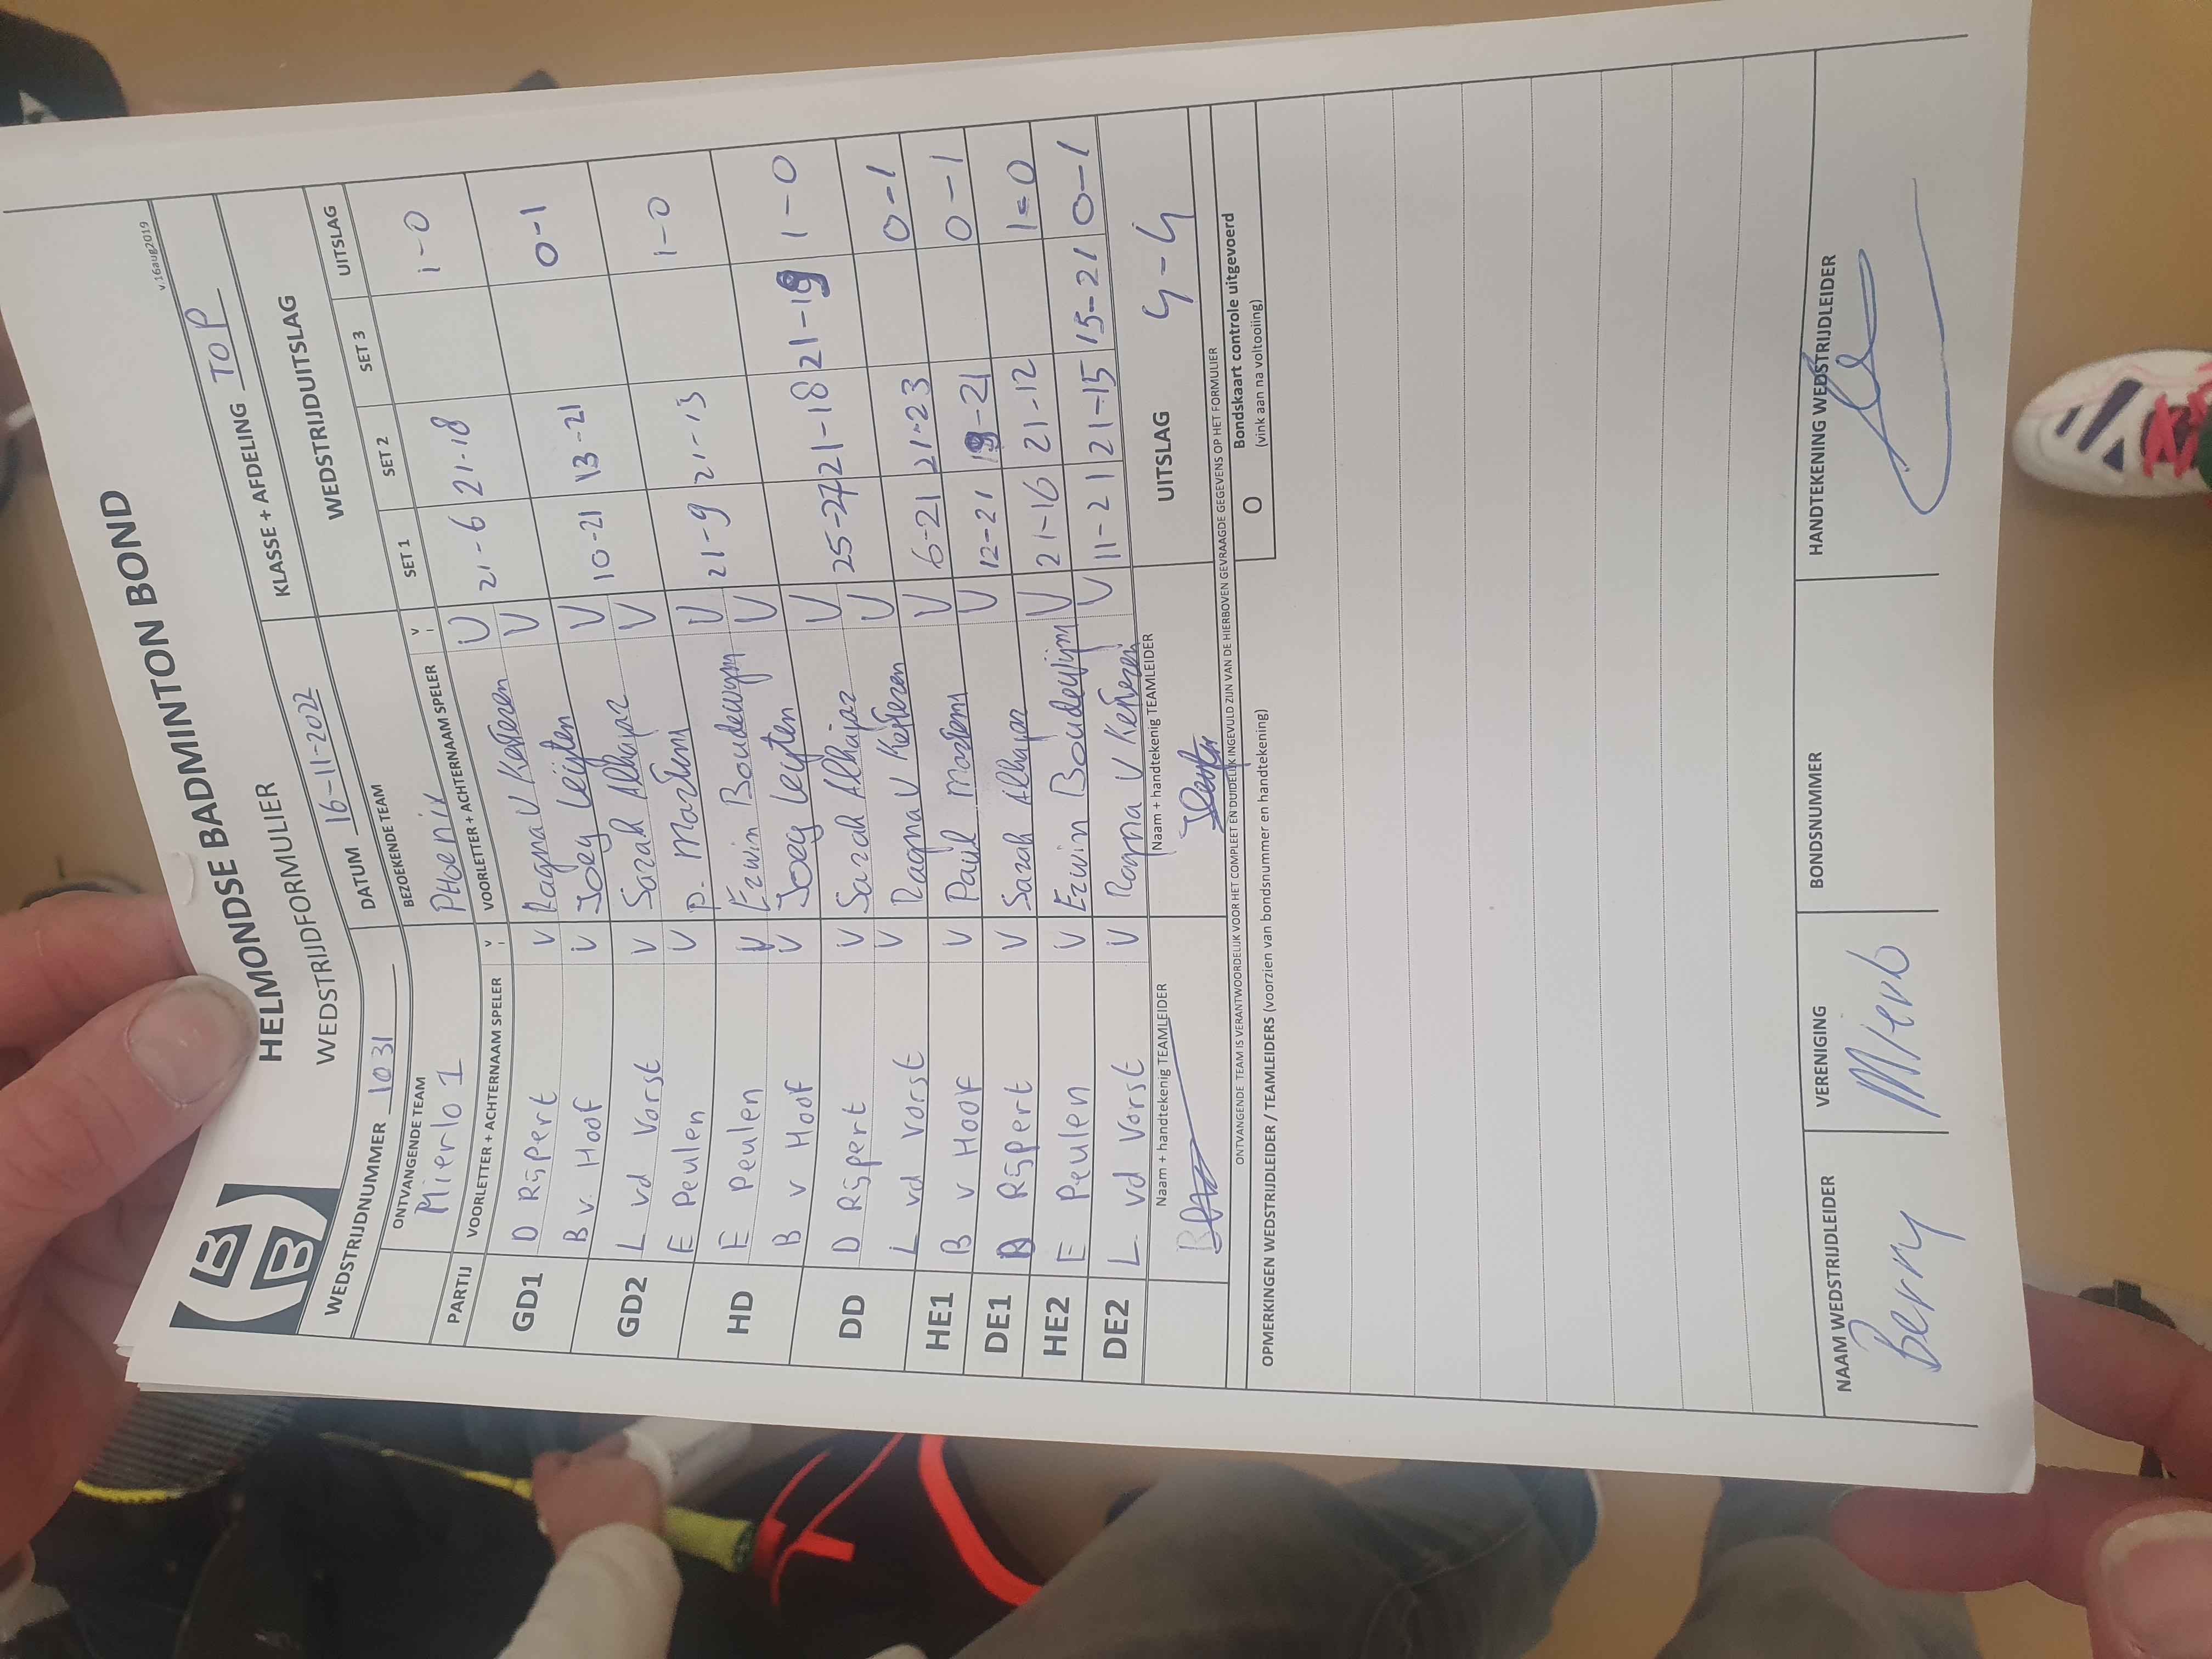 HELMONDSE BADMINTON BOND
WEDSTRIJDFORMULIER
v.16aug2019
WEDSTRIJDNUMMER 1031 DATUM 16-11-2022 KLASSE + AFDELING TOP
ONTVANGENDE TEAM BEZOEKENDE TEAM WEDSTRIJDUITSLAG
Mierlo 1 PHoenix
PARTIJ VOORLETTER + ACHTERNAAM SPELER V VOORLETTER + ACHTERNAAM SPELER V SET 1 SET 2 SET 3 UITSLAG
GD1 D Rijpert V Ragna V Kerkezen V 21-6 21-18 1-0
B v. Hoof V Joey Leijten V
GD2 L vd Vorst V Sarah Alhajar V 10-21 13-21 0-1
E Peulen V P. Martens V
HD E Peulen V Erwin Boudewijm V 21-9 21-13 1-0
B v Hoof V Joey Leijten V
DD D Rijpert V Sarah Alhajar V 25-27 21-18 21-19 1-0
L vd Vorst V Ragna V Kerkezen V
HE1 B v Hoof V Paul Martens V 6-21 21-23 0-1
DE1 D Rijpert V Sarah Alhajar V 12-21 19-21 0-1
HE2 E Peulen V Erwin Boudewijm V 21-16 21-12 1-0
DE2 L vd Vorst V Ragna V Kerkezen V 11-21 21-15 15-21 0-1
Naam + handtekenig TEAMLEIDER Naam + handtekenig TEAMLEIDER UITSLAG 4-4
ONTVANGENDE TEAM IS VERANTWOORDELIJK VOOR HET COMPLEET EN DUIDELIJK INGEVULD ZIJN VAN DE HIERBOVEN GEVRAAGDE GEGEVENS OP HET FORMULIER
OPMERKINGEN WEDSTRIJDLEIDER / TEAMLEIDERS (voorzien van bondsnummer en handtekening) O Bondskaart controle uitgevoerd
(vink aan na voltooiing)
NAAM WEDSTRIJDLEIDER VERENIGING BONDSNUMMER HANDTEKENING WEDSTRIJDLEIDER
Berry